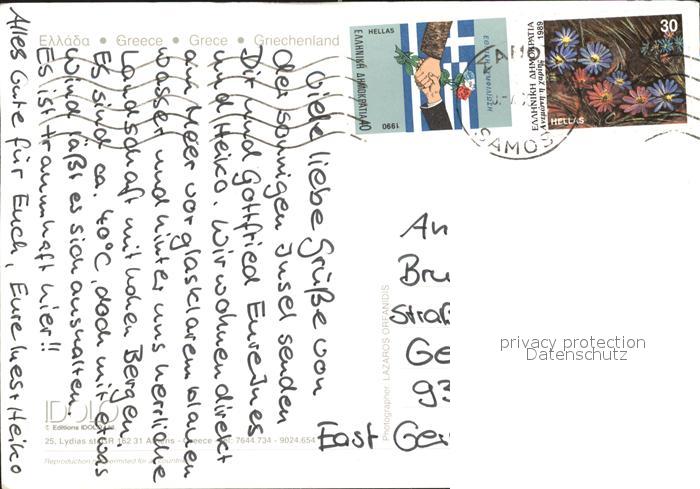 Ελλάδα • Greece • Grece • Griechenland
Viele liebe Grüße von
der sonnigen Insel senden
Dir und Gottfried Eure Ines
und Heiko. Wir wohnen direkt
am Meer vor glasklarem blauen
Wasser und hinter uns herrliche
Landschaft mit hohen Bergen.
Es sind ca. 40°C, doch mit etwas
Wind läßt es sich aushalten.
Es ist traumhaft hier!!
Alles Gute für Euch, Eure Ines+Heiko
HELLAS
ΕΛΛΗΝΙΚΗ ΔΗΜΟΚΡΑΤΙΑ 40
ΕΘΝΙΚΗ ΣΥΜΦΙΛΙΩΣΗ
1990
SAMOS
ΕΛΛΗΝΙΚΗ ΔΗΜΟΚΡΑΤΙΑ
1989
30
HELLAS
An
Bru
Straß
Ge
93
East Ger
privacy protection
Datenschutz
Photographer: LAZAROS ORFANIDIS
IDOLO
© Editions IDOLO
25, Lydias str. GR 162 31 Athens - Greece Tel: 7644.734 - 9024.654
Reproduction